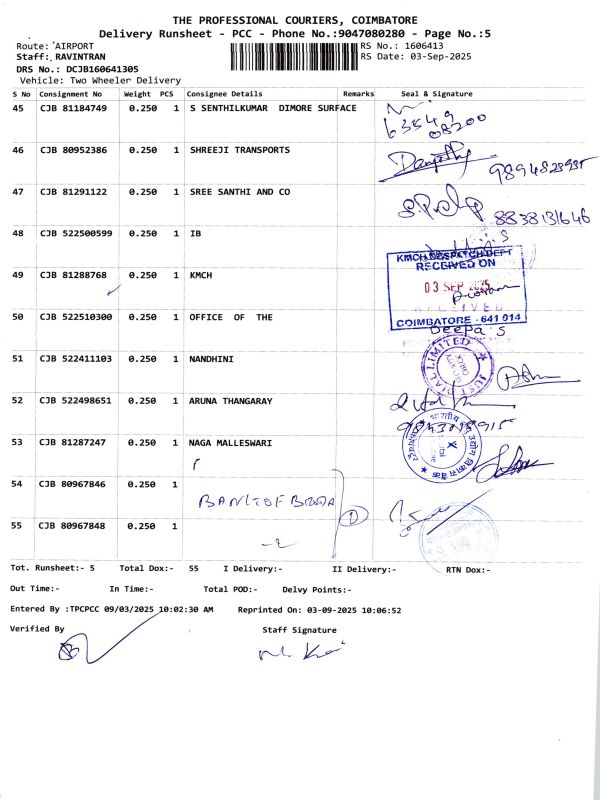 THE PROFESSIONAL COURIERS, COIMBATORE
Delivery Runsheet - PCC - Phone No.:9047080280 - Page No.:5
Route: AIRPORT
RS No.: 1606413
Staff: RAVINTRAN
RS Date: 03-Sep-2025
DRS No.: DCJB160641305
Vehicle: Two Wheeler Delivery
S No Consignment No Weight PCS Consignee Details Remarks Seal & Signature
45 CJB 81184749 0.250 1 S SENTHILKUMAR DIMORE SURFACE
63549
08200
46 CJB 80952386 0.250 1 SHREEJI TRANSPORTS
9894823985
47 CJB 81291122 0.250 1 SREE SANTHI AND CO
8838131646
48 CJB 522500599 0.250 1 IB
KMCH DESPATCH DEPT
RECEIVED ON
49 CJB 81288768 0.250 1 KMCH
03 SEP 2025
RECEIVED
50 CJB 522510300 0.250 1 OFFICE OF THE
COIMBATORE - 641 014
Deepa's
51 CJB 522411103 0.250 1 NANDHINI
52 CJB 522498651 0.250 1 ARUNA THANGARAY
53 CJB 81287247 0.250 1 NAGA MALLESWARI
54 CJB 80967846 0.250 1
BANK OF BRODA
1
55 CJB 80967848 0.250 1
-2
Tot. Runsheet:- 5 Total Dox:- 55 I Delivery:- II Delivery:- RTN Dox:-
Out Time:- In Time:- Total POD:- Delvy Points:-
Entered By :TPCPCC 09/03/2025 10:02:30 AM Reprinted On: 03-09-2025 10:06:52
Verified By Staff Signature